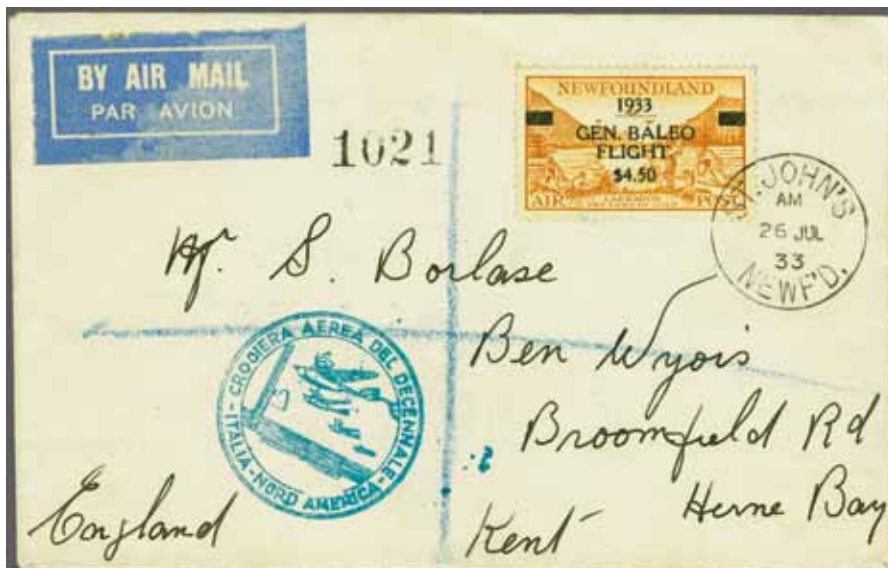 BY AIR MAIL
PAR AVION
1021
NEWFOUNDLAND
1933
GEN. BALBO
FLIGHT.
$4.50
AIR POST
LABRADOR
ST. JOHN'S
AM
26 JUL
33
NEWF'D.
Mr. S. Borlase
Ben Wyois
Broomfield Rd
Herne Bay
Kent
England
CROCIERA AEREA DEL DECENNALE - ITALIA - NORD AMERICA -